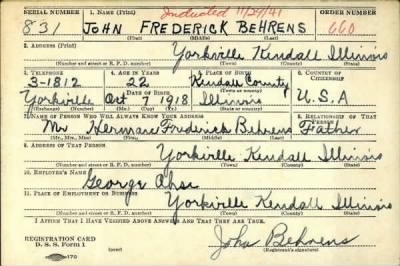 SERIAL NUMBER 1. NAME (Print) Inducted 11/29/41 ORDER NUMBER
831 JOHN FREDERICK BEHRENS 660
(First) (Middle) (Last)
2. ADDRESS (Print)
Yorkville Kendall Illinois
(Number and street or R. F. D. number) (Town) (County) (State)
3. TELEPHONE 4. AGE IN YEARS 5. PLACE OF BIRTH 6. COUNTRY OF CITIZENSHIP
3-1812 22 Kendall County
DATE OF BIRTH (Town or county)
Yorkville Oct 7 1918 Illinois U.S.A
(Exchange) (Mo.) (Day) (Yr.) (State or country)
7. NAME OF PERSON WHO WILL ALWAYS KNOW YOUR ADDRESS 8. RELATIONSHIP OF THAT PERSON
Mr Herman Frederick Behrens Father
(Mr., Mrs., Miss) (First) (Middle) (Last)
9. ADDRESS OF THAT PERSON
Yorkville Kendall Illinois
(Number and street or R. F. D. number) (Town) (County) (State)
10. EMPLOYER'S NAME
George
11. PLACE OF EMPLOYMENT OR BUSINESS
Yorkville Kendall Illinois
(Number and street or R. F. D. number) (Town) (County) (State)
I AFFIRM THAT I HAVE VERIFIED ABOVE ANSWERS AND THAT THEY ARE TRUE.
REGISTRATION CARD
D. S. S. Form 1 John Behrens
(Registrant's signature)